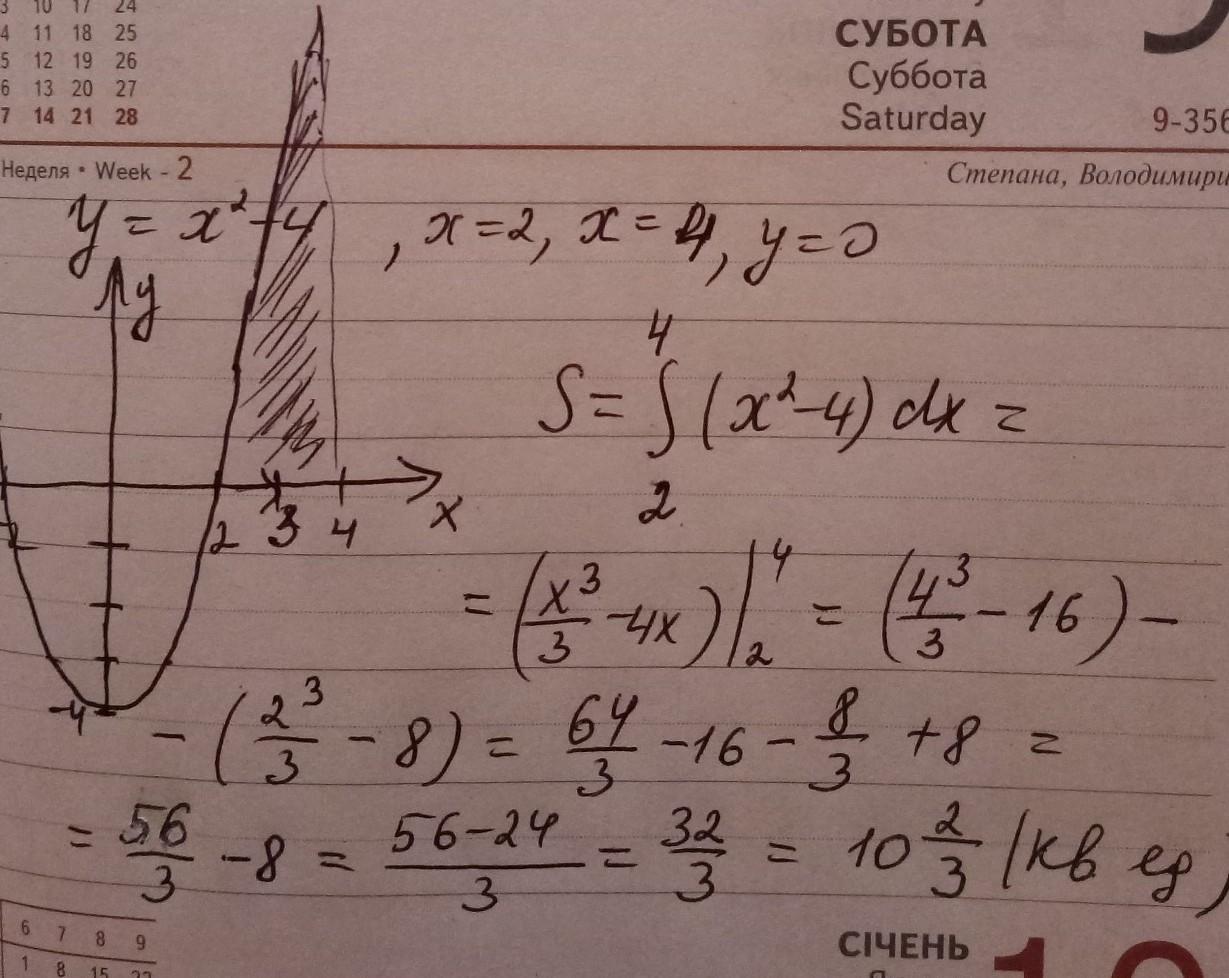 3 10 17 24
4 11 18 25
5 12 19 26
6 13 20 27
7 14 21 28
СУБОТА
Суббота
Saturday
9-356
Неделя • Week - 2
Степана, Володимири
y = x² - 4, x = 2, x = 4, y = 0
y
S = ∫₂⁴ (x² - 4) dx =
-2 2 3 4 x
= (x³/3 - 4x) |₂⁴ = (4³/3 - 16) -
-4
- (2³/3 - 8) = 64/3 - 16 - 8/3 + 8 =
= 56/3 - 8 = (56-24)/3 = 32/3 = 10 2/3 (кв ед)
6 7 8 9
1 8 15 22
СІЧЕНЬ